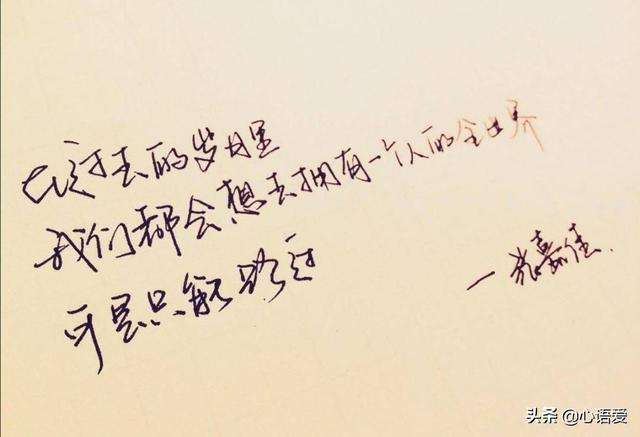 在过去的岁月里
我们都会想去拥有一个人的全世界
可是只能路过
一张嘉佳.
头条 @心语爱